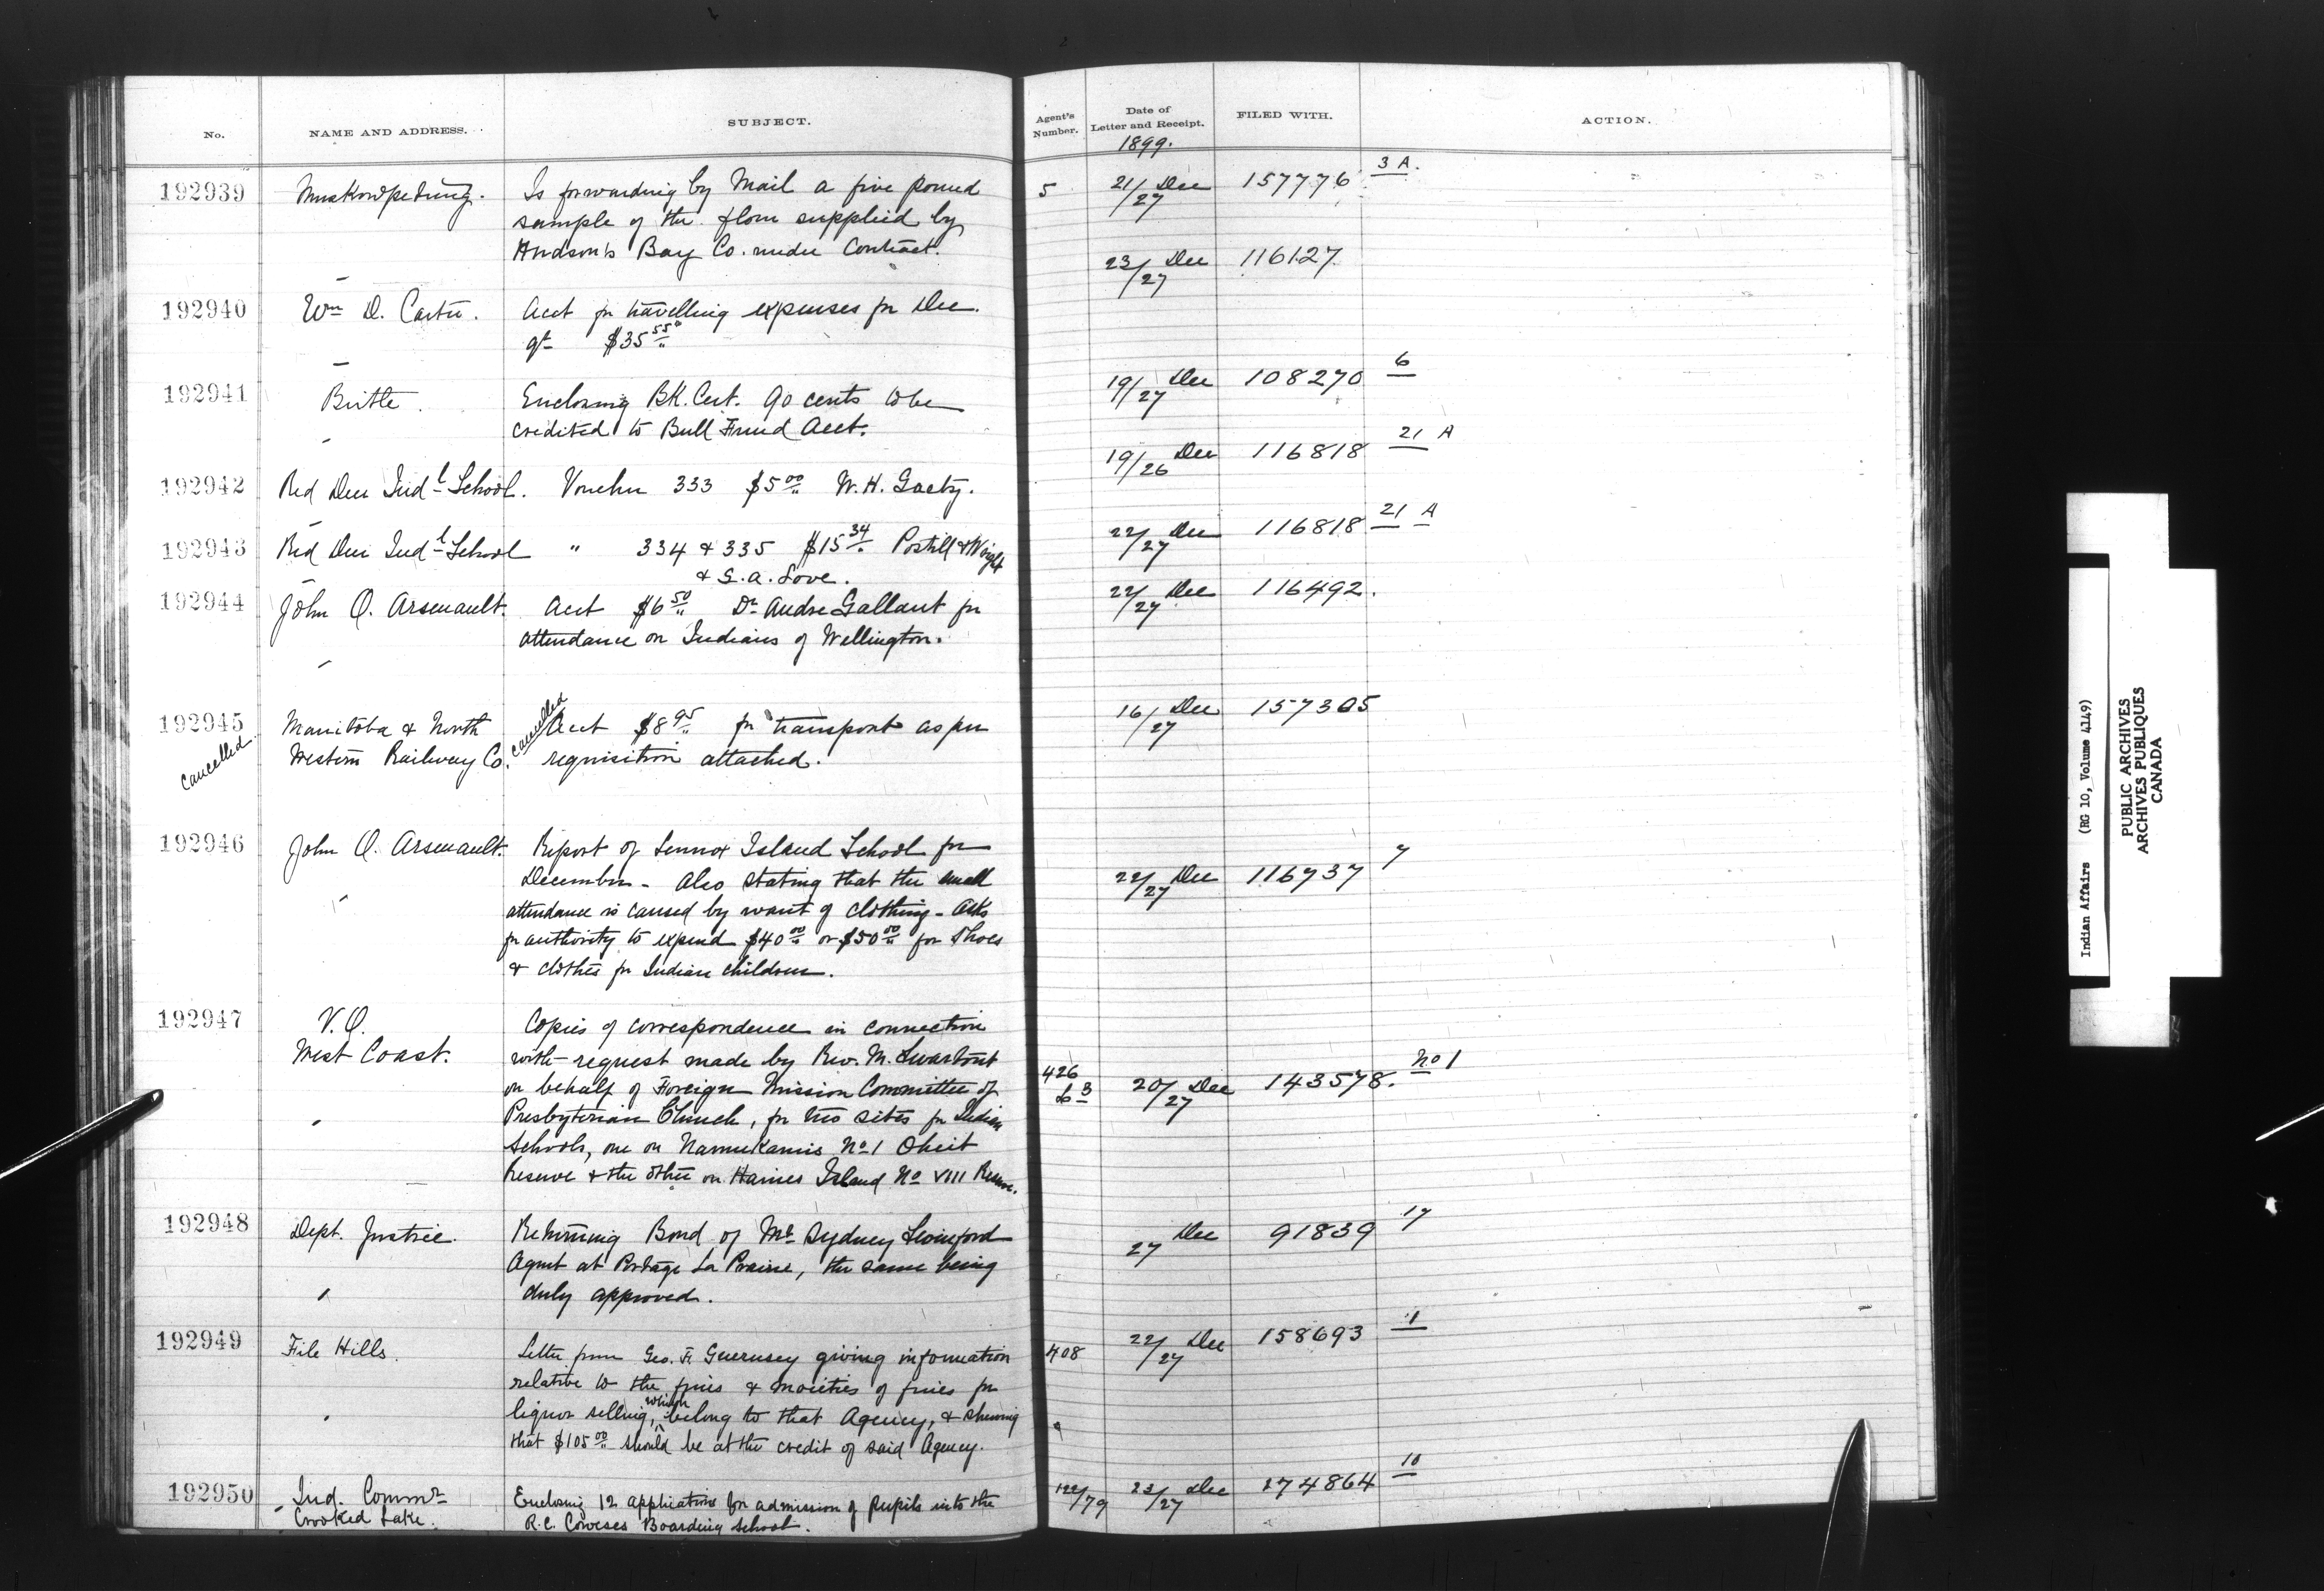 No.
NAME AND ADDRESS.
SUBJECT.
Agent's Number.
Date of Letter and Receipt.
FILED WITH.
ACTION.
1899.
192939 Muskowpetung. Is forwarding by Mail a five pound 5 21/27 Dec 157776 3 A.
sample of the flour supplied by
Hudson's Bay Co. under Contract.
23/27 Dec 116127
192940 Wm D. Carter. Acct for travelling expenses for Dec.
qt $35 55
192941 Birtle. Enclosing BK. Cert. 90 cents to be 19/27 Dec 108270 6
credited to Bull Fund Acct.
192942 Red Deer Indl School. Voucher 333 $5 00 W. H. Gaetz. 19/26 Dec 116818 21 A
192943 Red Deer Indl School " 334 & 335 $15 34 Postill & Wright 22/27 Dec 116818 21 A
& G. A. Love.
192944 John O. Arsenault. Acct $6 50 Dr Andre Gallant for 22/27 Dec 116492.
attendance on Indians of Wellington.
192945 Manitoba & North cancelled Acct $8 95 for transport as per 16/27 Dec 157305
cancelled Western Railway Co. requisition attached.
192946 John O. Arsenault. Report of Lennox Island School for 22/27 Dec 116737 7
December - Also stating that the small
attendance is caused by want of clothing - Asks
for authority to expend $40 00 or $50 00 for Shoes
& clothes for Indian children.
192947 V. O. Copies of correspondence in connection
West Coast. with request made by Rev. M. Swartout 426 20/27 Dec 143578. No 1
on behalf of Foreign Mission Committee of
Presbyterian Church, for two sites for Indian
Schools, one on Namukamis No 1 Oheit
Reserve & the other on Haines Island No VIII Reserve.
192948 Dept. Justice. Returning Bond of Mr Sydney Swinford 27 Dec 91839 17
Agent at Portage La Prairie, the same being
duly approved.
192949 File Hills. Letter from Geo. F. Guernsey giving information 408 22/27 Dec 158693 1
relative to the fines & moieties of fines for
liquor selling, which belong to that Agency, & shewing
that $105 00 should be at the credit of said Agency.
192950 Ind. Commr Enclosing 12 applications for admission of pupils into the 122/79 23/27 Dec 274864 10
Crooked Lake. R. C. Coweses Boarding School.
Indian Affairs (RG 10, Volume 4149)
PUBLIC ARCHIVES
ARCHIVES PUBLIQUES
CANADA